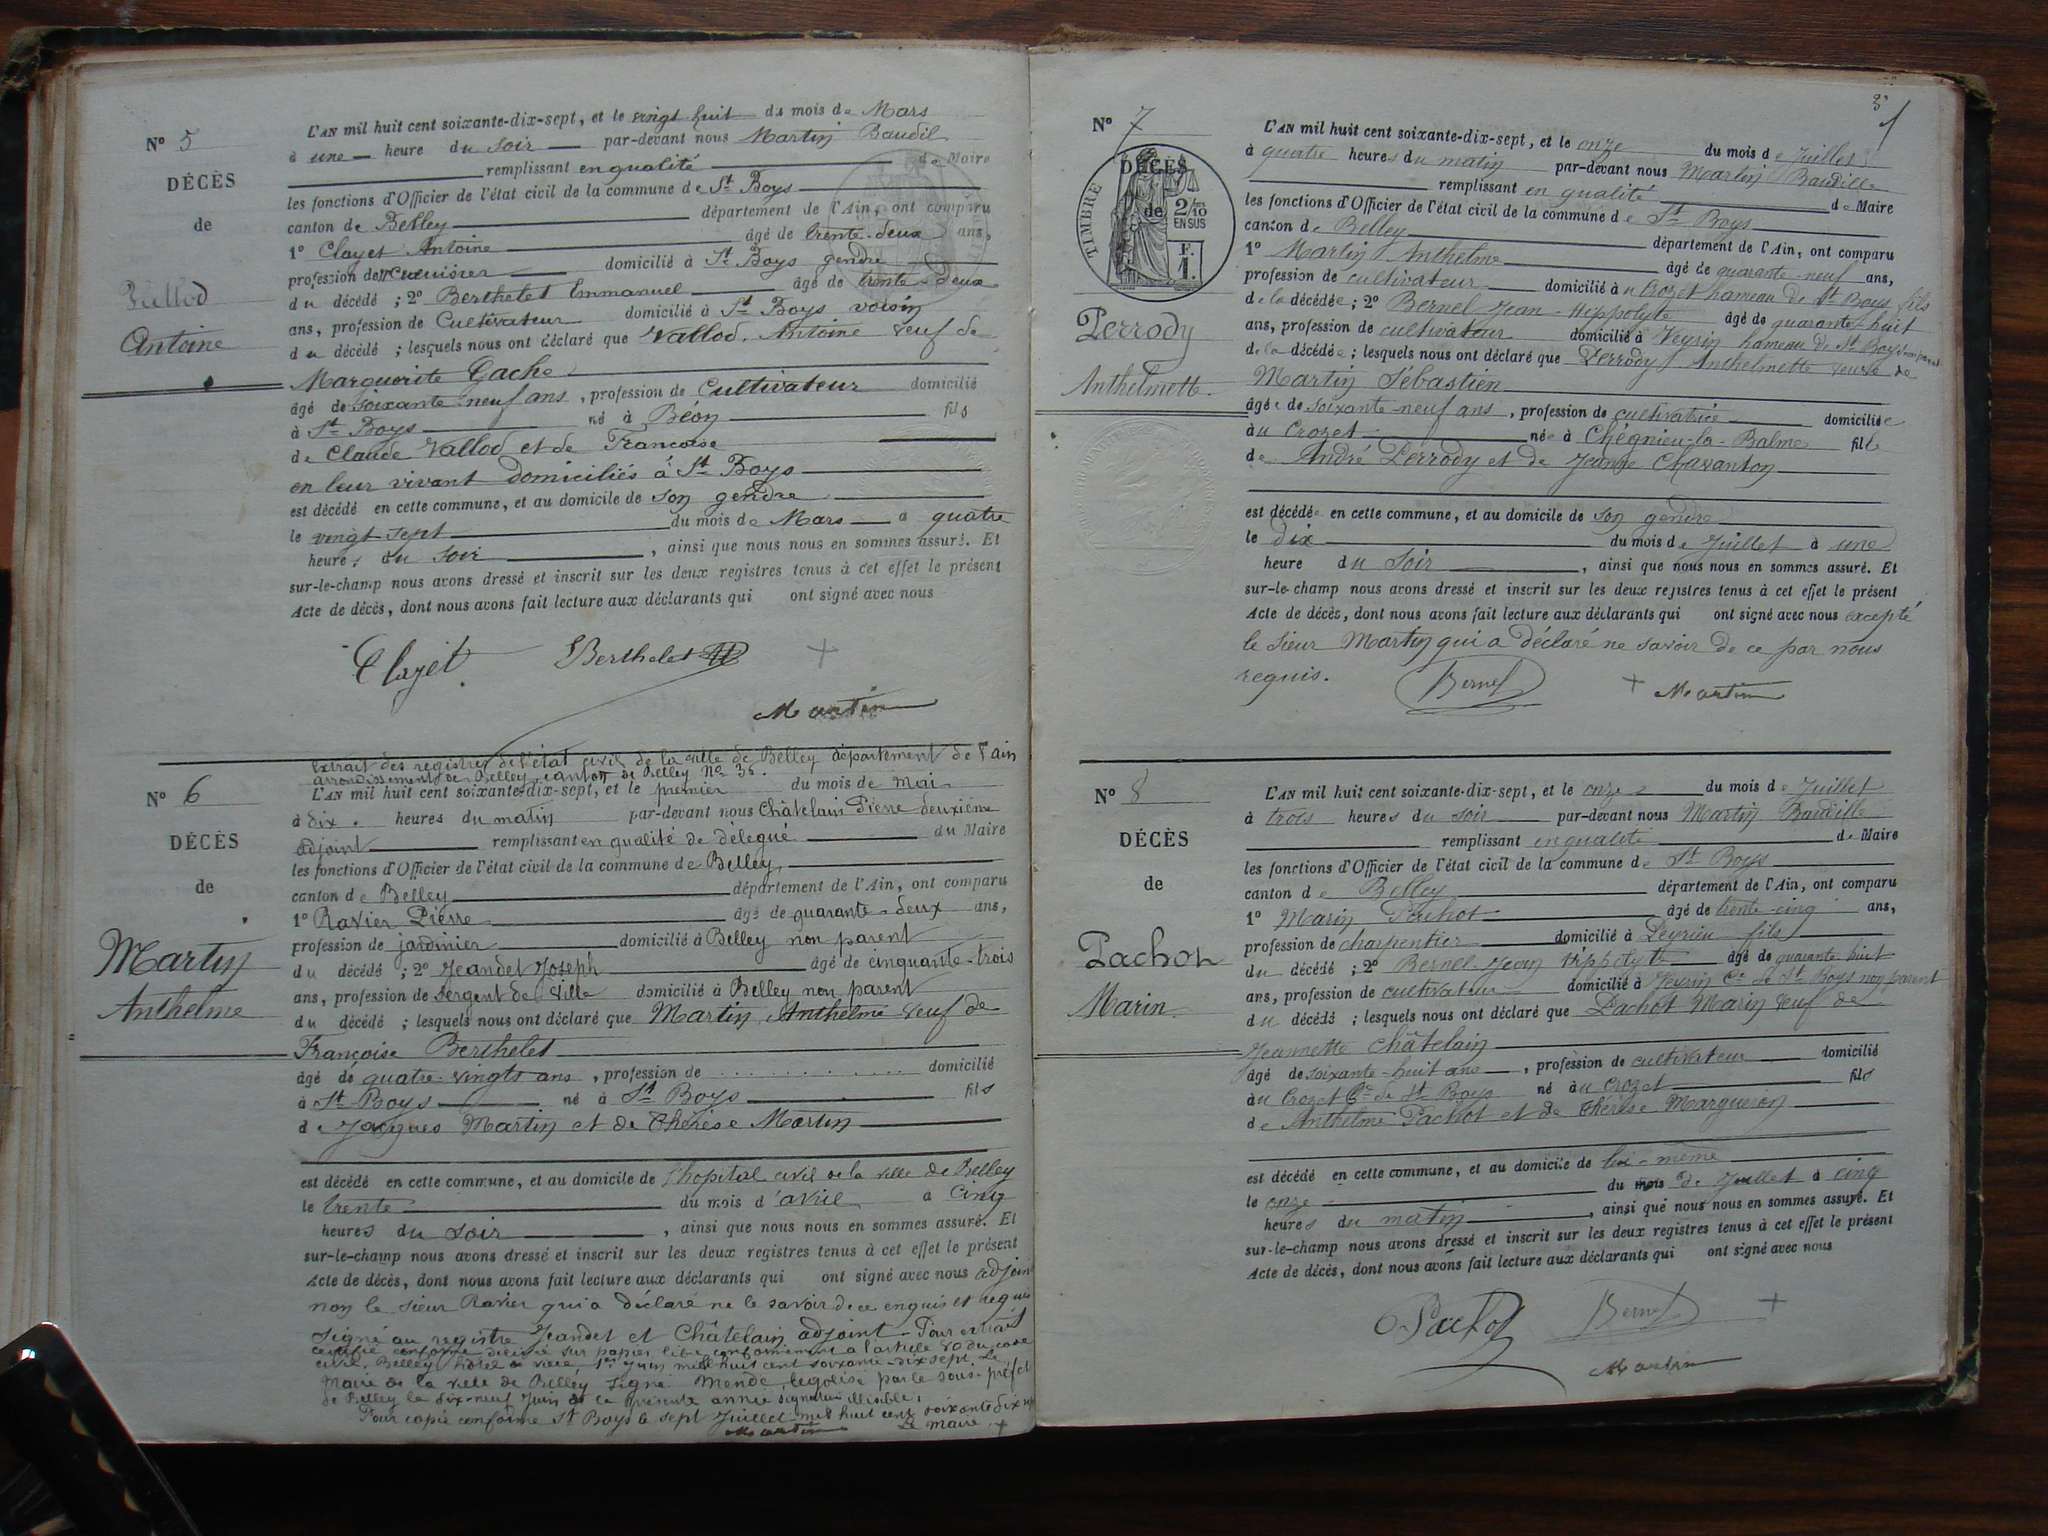 L'AN mil huit cent soixante-dix-sept, et le vingt huit du mois de Mars
N° 5
à une heure du soir par-devant nous Martin Baudil
remplissant en qualité de Maire
DÉCÈS
les fonctions d'Officier de l'état civil de la commune de St Boys
de
canton de Belley département de l'Ain, ont comparu
1° Clayet Antoine âgé de trente-deux ans,
profession de menuisier domicilié à St Boys gendre
Vallod
du décédé ; 2° Berthelet Emmanuel âgé de trente-deux
ans, profession de Cultivateur domicilié à St Boys voisin
Antoine
du décédé ; lesquels nous ont déclaré que Vallod Antoine veuf de
Marguerite Gache
âgé de soixante-neuf ans, profession de Cultivateur domicilié
à St Boys né à Béon fils
de Claude Vallod et de Françoise
en leur vivant domiciliés à St Boys
est décédé en cette commune, et au domicile de son gendre
le vingt sept du mois de Mars a quatre
heures du soir, ainsi que nous nous en sommes assuré. Et
sur-le-champ nous avons dressé et inscrit sur les deux registres tenus à cet effet le présent
Acte de décès, dont nous avons fait lecture aux déclarants qui ont signé avec nous
Clayet Berthelet
Martin
Extrait des registres de l'état civil de la ville de Belley département de l'ain
arrondissement de Belley canton de Belley No 36.
N° 6
L'AN mil huit cent soixante-dix-sept, et le premier du mois de mai
à dix heures du matin par-devant nous Châtelain Pierre deuxième
DÉCÈS
adjoint remplissant en qualité de délégué du Maire
les fonctions d'Officier de l'état civil de la commune de Belley,
de
canton de Belley département de l'Ain, ont comparu
1° Ravier Pierre âgé de quarante-deux ans,
profession de jardinier domicilié à Belley non parent
Martin
du décédé ; 2° Jeandet Joseph âgé de cinquante-trois
ans, profession de Sergent de ville domicilié à Belley non parent
Anthelme
du décédé ; lesquels nous ont déclaré que Martin Anthelme veuf de
Françoise Berthelet
âgé de quatre-vingts ans, profession de .............. domicilié
à St Boys né à St Boys fils
de Jacques Martin et de Thérèse Martin
est décédé en cette commune, et au domicile de l'hopital civil de la ville de Belley
le trente du mois d'avril a cinq
heures du soir, ainsi que nous nous en sommes assuré. Et
sur-le-champ nous avons dressé et inscrit sur les deux registres tenus à cet effet le présent
Acte de décès, dont nous avons fait lecture aux déclarants qui ont signé avec nous adjoint
non le sieur Ravier qui a déclaré ne le savoir de ce enquis et requis
Signé au registre Jeandet et Châtelain adjoint. Pour extrait
certifié conforme délivré sur papier libre conformément a l'article 80 du code
civil. Belley hôtel de ville, 1er Juin mil huit cent soixante-dix sept. Le
Maire de la ville de Belley signé par le sous-préfet
de Belley le dix-neuf Juin de la présente année signature illisible.
Pour copie conforme St Boys le sept Juillet mil huit cent soixante dix sept
Martin Le Maire
N° 7
L'AN mil huit cent soixante-dix-sept, et le onze du mois de Juillet
à quatre heures du matin par-devant nous Martin Baudille
DÉCÈS
remplissant en qualité de Maire
TIMBRE
de
2/10 EN SUS
F. 1.
les fonctions d'Officier de l'état civil de la commune de St Boys
canton de Belley département de l'Ain, ont comparu
1° Martin Anthelme âgé de quarante-neuf ans,
profession de cultivateur domicilié à u Crozet hameau de St Boys fils
Perrody
de la décédée ; 2° Bernel Jean-Hippolyte âgé de quarante-huit
ans, profession de cultivateur domicilié à Veysin hameau de St Boys
Anthelmette.
de la décédée ; lesquels nous ont déclaré que Perrody Anthelmette veuve de
Martin Sébastien
âgée de soixante-neuf ans, profession de cultivatrice domiciliée
àu Crozet née à Chégnieu-la-Balme fille
de André Perrody et de Jeanne Chavanton
est décédée en cette commune, et au domicile de son gendre
le dix du mois de Juillet à une
heure du soir, ainsi que nous nous en sommes assuré. Et
sur-le-champ nous avons dressé et inscrit sur les deux registres tenus à cet effet le présent
Acte de décès, dont nous avons fait lecture aux déclarants qui ont signé avec nous excepté
le sieur Martin qui a déclaré ne savoir de ce par nous
requis. Bernel Martin
N° 8
L'AN mil huit cent soixante-dix-sept, et le onze du mois de Juillet
à trois heures du soir par-devant nous Martin Baudille
DÉCÈS
remplissant en qualité de Maire
les fonctions d'Officier de l'état civil de la commune de St Boys
de
canton de Belley département de l'Ain, ont comparu
1° Marin Pachot âgé de trente-cinq ans,
profession de charpentier domicilié à Peyrieu fils
Pachot
du décédé ; 2° Bernel Jean Hippolyte âgé de quarante huit
ans, profession de cultivateur domicilié à Veysin Cne de St Boys non parent
Marin
du décédé ; lesquels nous ont déclaré que Pachot Marin veuf de
Jeannette Châtelain
âgé de soixante-huit ans, profession de cultivateur domicilié
àu Crozet Cne de St Boys né àu Crozet fils
de Anthelme Pachot et de Thérèse Margueron
est décédé en cette commune, et au domicile de lui-même
le onze du mois de Juillet à cinq
heures du matin, ainsi que nous nous en sommes assuré. Et
sur-le-champ nous avons dressé et inscrit sur les deux registres tenus à cet effet le présent
Acte de décès, dont nous avons fait lecture aux déclarants qui ont signé avec nous
Pachot Bernel
Martin